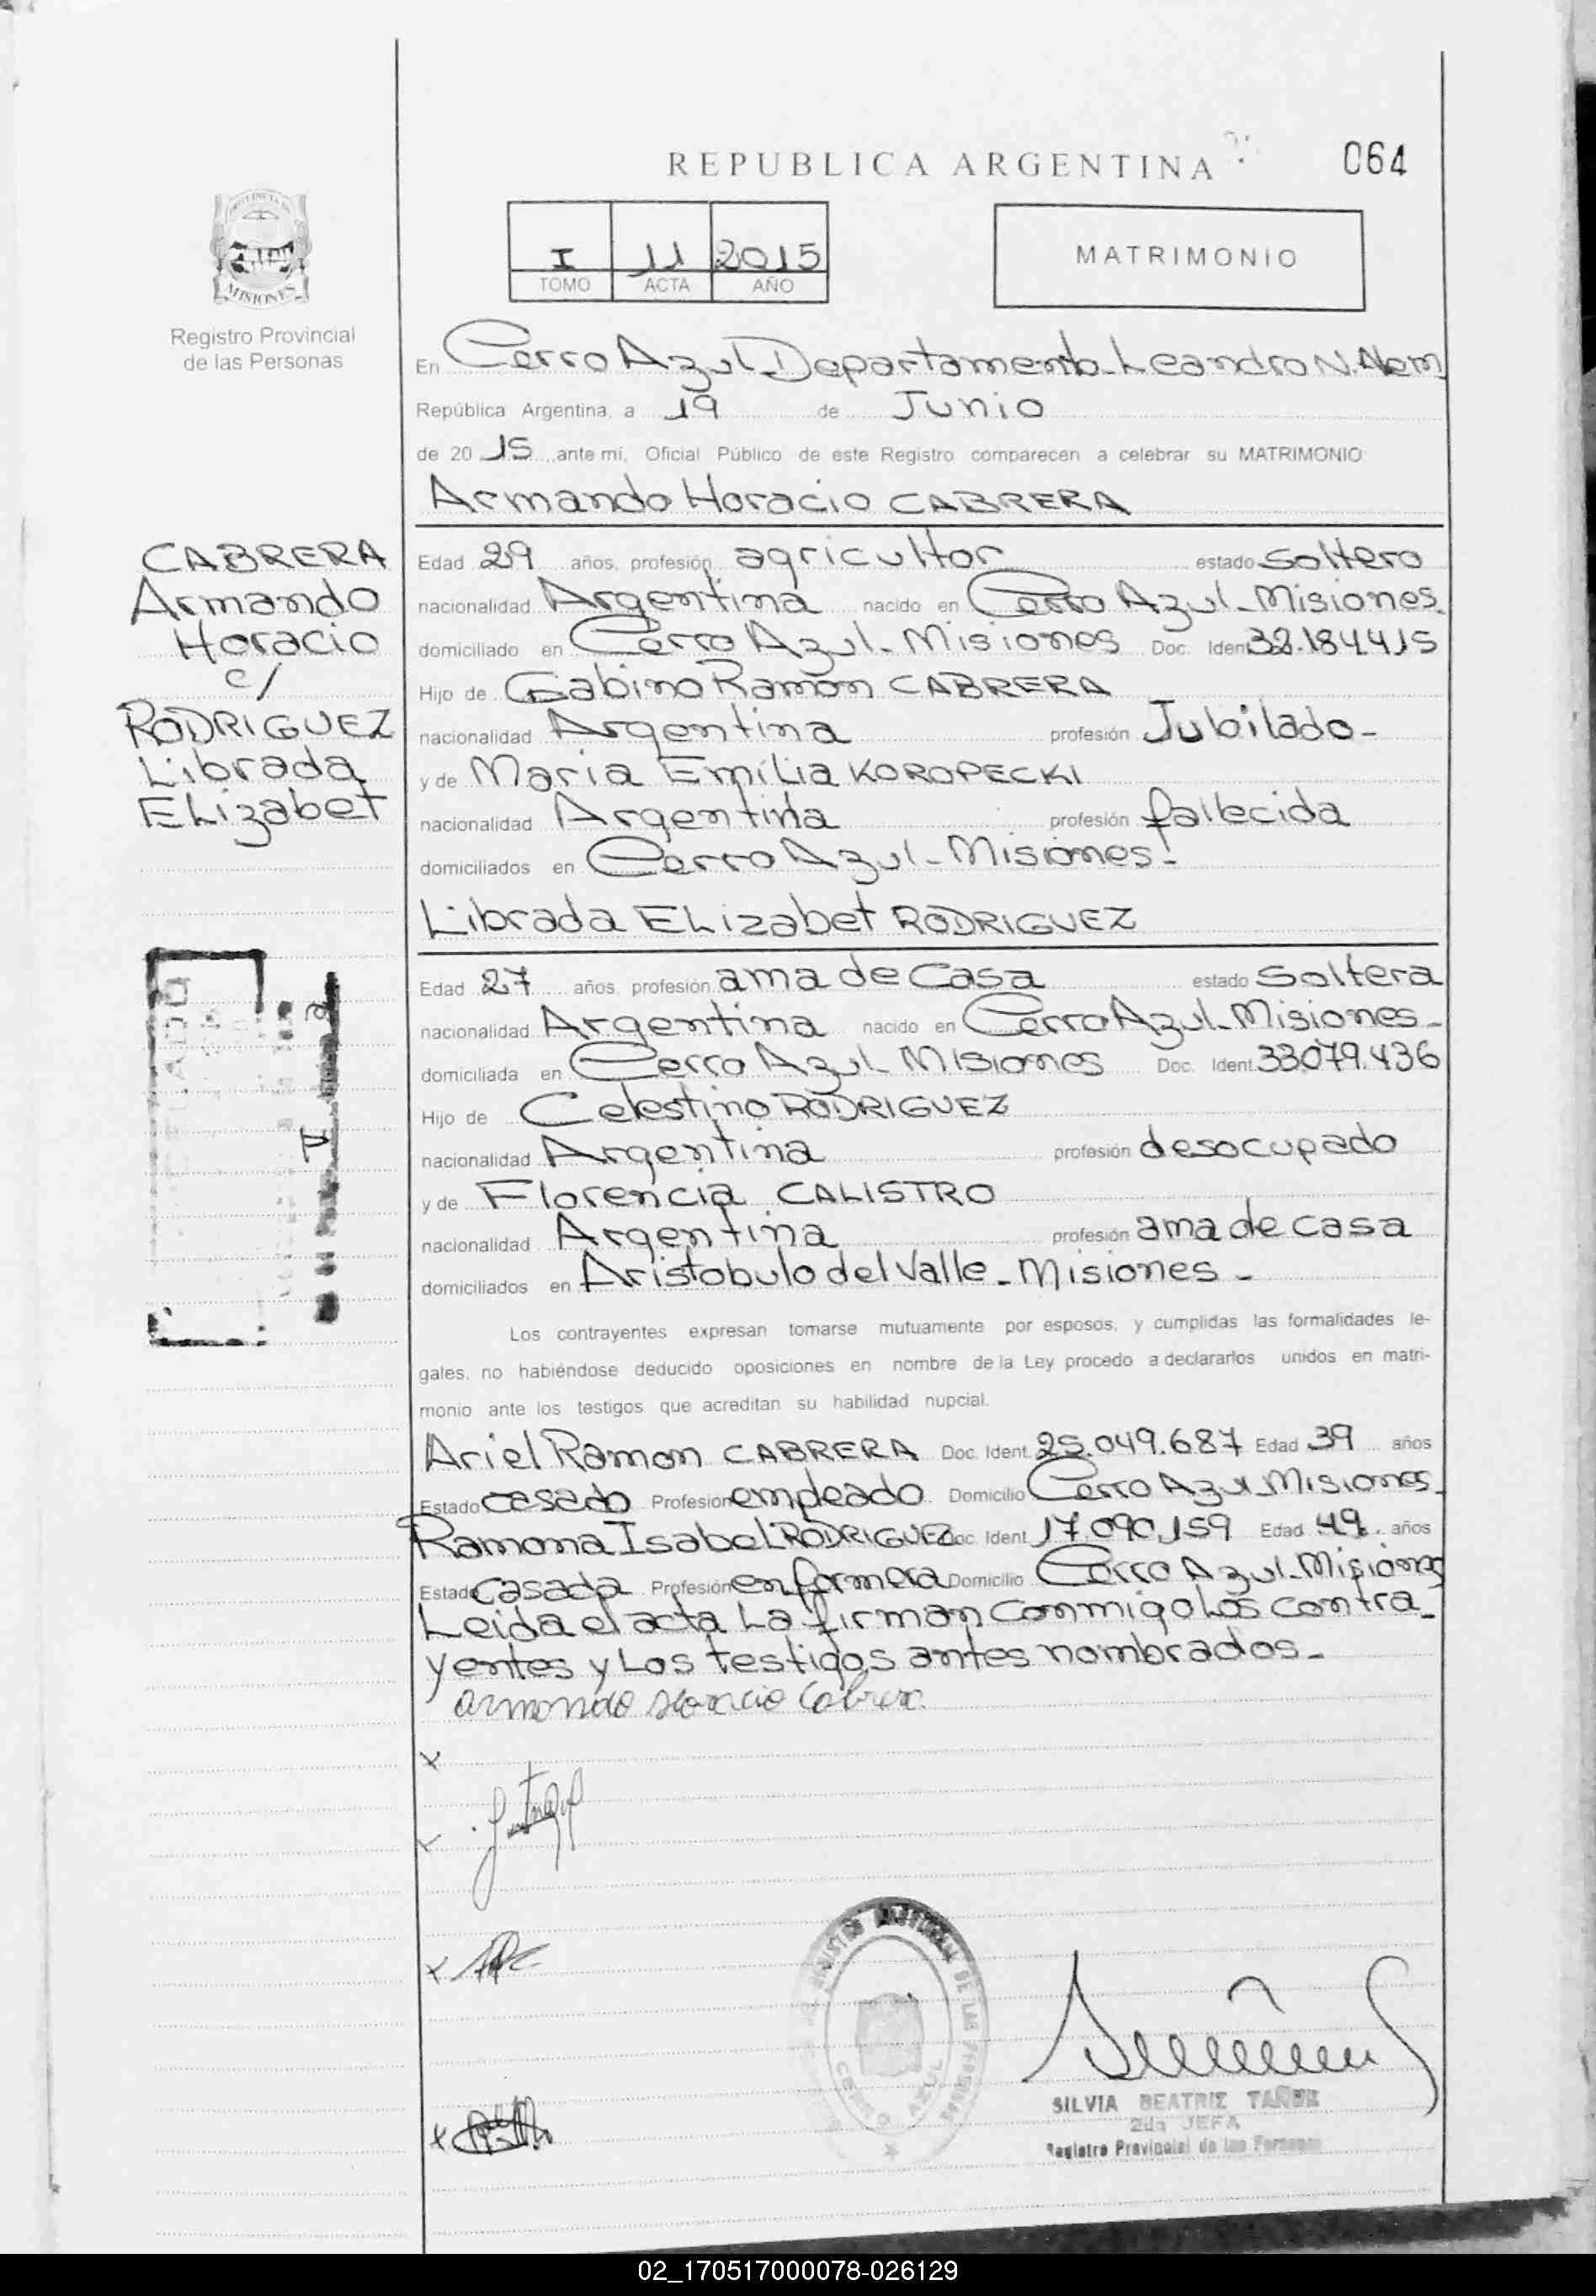 REPUBLICA ARGENTINA
064
PROVINCIA DE
MISIONES
Registro Provincial
de las Personas
I 11 2015
TOMO ACTA AÑO
MATRIMONIO
En Cerro Azul Departamento Leandro N. Alem
República Argentina, a 19 de Junio
de 20 15 ante mí, Oficial Público de este Registro comparecen a celebrar su MATRIMONIO:
Armando Horacio CABRERA
CABRERA
Armando
Horacio
c/
RODRIGUEZ
Librada
Elizabet
Edad 29 años, profesión agricultor estado Soltero
nacionalidad Argentina nacido en Cerro Azul - Misiones.
domiciliado en Cerro Azul - Misiones Doc. Ident 32.184.415
Hijo de Gabino Ramón CABRERA
nacionalidad Argentina profesión Jubilado -
y de Maria Emilia KOROPECKI
nacionalidad Argentina profesión fallecida
domiciliados en Cerro Azul - Misiones -
Librada Elizabet RODRIGUEZ
Edad 27 años, profesión ama de Casa estado Soltera
nacionalidad Argentina nacido en Cerro Azul - Misiones -
domiciliada en Cerro Azul - Misiones Doc. Ident. 33.079.436
Hijo de Celestino RODRIGUEZ
nacionalidad Argentina profesión desocupado
y de Florencia CALISTRO
nacionalidad Argentina profesión ama de casa
domiciliados en Aristobulo del Valle - Misiones -
Los contrayentes expresan tomarse mutuamente por esposos, y cumplidas las formalidades le-
gales, no habiéndose deducido oposiciones en nombre de la Ley procedo a declararlos unidos en matri-
monio ante los testigos que acreditan su habilidad nupcial.
Ariel Ramon CABRERA Doc. Ident. 25.049.687 Edad 39 años
Estado casado Profesión empleado Domicilio Cerro Azul - Misiones.
Ramona Isabel RODRIGUEZ Doc. Ident. 17.090.159 Edad 49 años
Estado Casada Profesión enfermera Domicilio Cerro Azul - Misiones
Leida el acta La firman Conmigo Los contra-
yentes y Los testigos antes nombrados -
Armando Horacio Cabrera
REGISTRO PROVINCIAL DE LAS PERSONAS
CERRO AZUL
SILVIA BEATRIZ
2da JEFA
Registro Provincial de las Personas
02_170517000078-026129